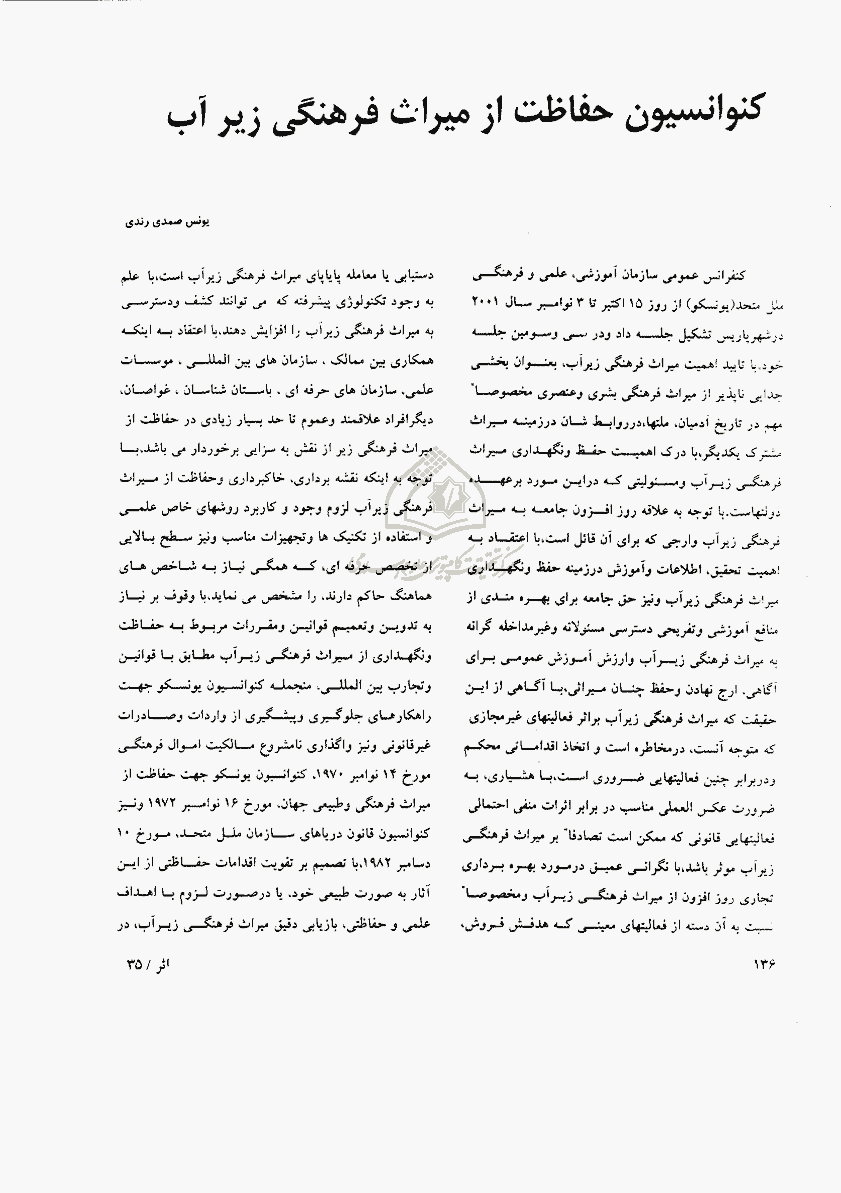 کنوانسیون حفاظت از میراث فرهنگی زیر آب
یونس صمدی رندی
کنفرانس عمومی سازمان آموزشی، علمی و فرهنگی
ملل متحد(یونسکو) از روز ۱۵ اکتبر تا ۳ نوامبر سال ۲۰۰۱
درشهرپاریس تشکیل جلسه داد ودر سی وسومین جلسه
خود،با تایید اهمیت میراث فرهنگی زیرآب، بعنوان بخشی
جدایی ناپذیر از میراث فرهنگی بشری وعنصری مخصوصاً
مهم در تاریخ آدمیان، ملتها،درروابط شان درزمینه میراث
مشترک یکدیگر،با درک اهمیت حفظ ونگهداری میراث
فرهنگی زیرآب ومسئولیتی که دراین مورد برعهده
دولتهاست،با توجه به علاقه روز افزون جامعه به میراث
فرهنگی زیرآب وارجی که برای آن قائل است،با اعتقاد به
اهمیت تحقیق، اطلاعات وآموزش درزمینه حفظ ونگهداری
میراث فرهنگی زیرآب ونیز حق جامعه برای بهره مندی از
منافع آموزشی وتفریحی دسترسی مسئولانه وغیرمداخله گرانه
به میراث فرهنگی زیرآب وارزش آموزش عمومی برای
آگاهی، ارج نهادن وحفظ چنان میراثی،با آگاهی از این
حقیقت که میراث فرهنگی زیرآب براثر فعالیتهای غیرمجازی
که متوجه آنست، درمخاطره است و اتخاذ اقداماتی محکم
ودربرابر چنین فعالیتهایی ضروری است،با هشیاری، به
ضرورت عکس العملی مناسب در برابر اثرات منفی احتمالی
فعالیتهایی قانونی که ممکن است تصادفاً بر میراث فرهنگی
زیرآب موثر باشد،با نگرانی عمیق درمورد بهره برداری
تجاری روز افزون از میراث فرهنگی زیرآب ومخصوصاً
نسبت به آن دسته از فعالیتهای معینی که هدفش فروش،
دستیابی یا معامله پایاپای میراث فرهنگی زیرآب است،با علم
به وجود تکنولوژی پیشرفته که می توانند کشف ودسترسی
به میراث فرهنگی زیرآب را افزایش دهند،با اعتقاد به اینکه
همکاری بین ممالک ، سازمان های بین المللی ، موسسات
علمی، سازمان های حرفه ای ، باستان شناسان ، غواصان،
دیگرافراد علاقمند وعموم تا حد بسیار زیادی در حفاظت از
میراث فرهنگی زیر از نقش به سزایی برخوردار می باشد،با
توجه به اینکه نقشه برداری، خاکبرداری وحفاظت از میراث
فرهنگی زیرآب لزوم وجود و کاربرد روشهای خاص علمی
و استفاده از تکنیک ها وتجهیزات مناسب ونیز سطح بالایی
از تخصص حرفه ای، که همگی نیاز به شاخص های
هماهنگ حاکم دارند، را مشخص می نماید،با وقوف بر نیاز
به تدوین وتعمیم قوانین ومقررات مربوط به حفاظت
ونگهداری از میراث فرهنگی زیرآب مطابق با قوانین
وتجارب بین المللی، منجمله کنوانسیون یونسکو جهت
راهکارهای جلوگیری وپیشگیری از واردات وصادرات
غیرقانونی ونیز واگذاری نامشروع مالکیت اموال فرهنگی
مورخ ۱۴ نوامبر ۱۹۷۰، کنوانسیون یونسکو جهت حفاظت از
میراث فرهنگی وطبیعی جهان، مورخ ۱۶ نوامبر ۱۹۷۲ ونیز
کنوانسیون قانون دریاهای سازمان ملل متحد، مورخ ۱۰
دسامبر ۱۹۸۲،با تصمیم بر تقویت اقدامات حفاظتی از این
آثار به صورت طبیعی خود، یا درصورت لزوم با اهداف
علمی و حفاظتی، بازیابی دقیق میراث فرهنگی زیرآب، در
۱۳۶
اثر / ۳۵